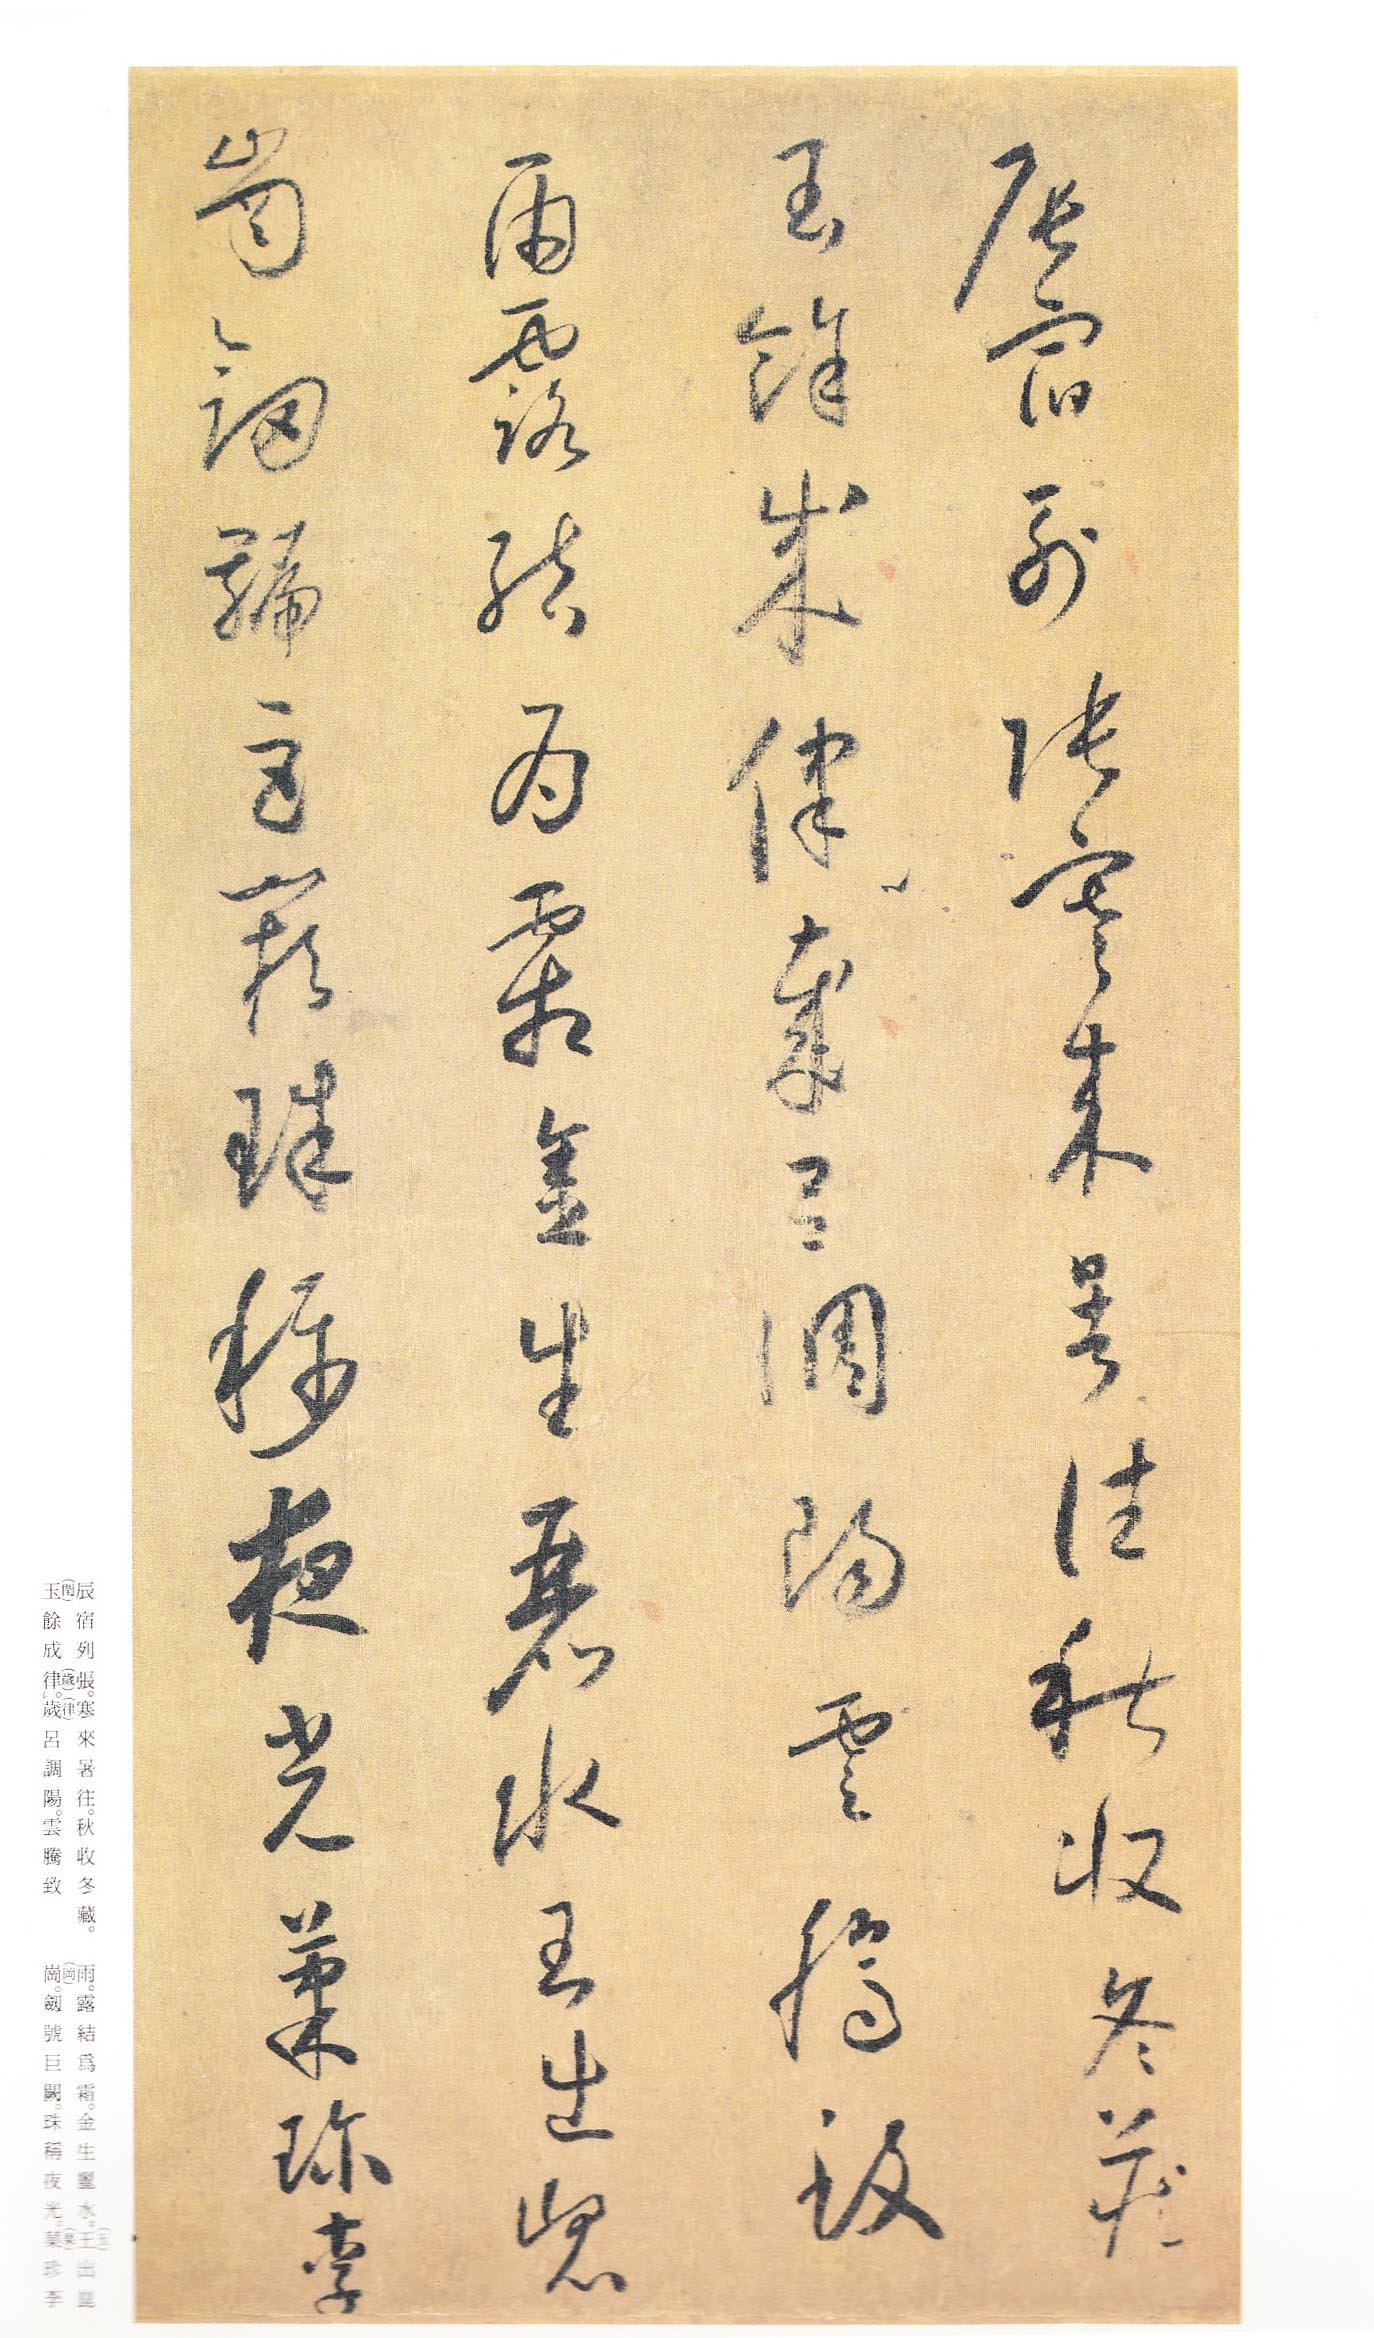 辰宿列張寒來暑往秋收冬藏
玉餘成律歲呂調陽雲騰致
雨露結爲霜金生麗水玉出崑
崗劒號巨闕珠稱夜光菓珍李
辰宿列張。寒來暑往。秋收冬藏。
(閏)(歲)(律)
玉餘成律。歲呂調陽。雲騰致
雨。露結爲霜。金生麗水。王出崑
(岡)
崗。劒號巨闕。珠稱夜光。菓珍李